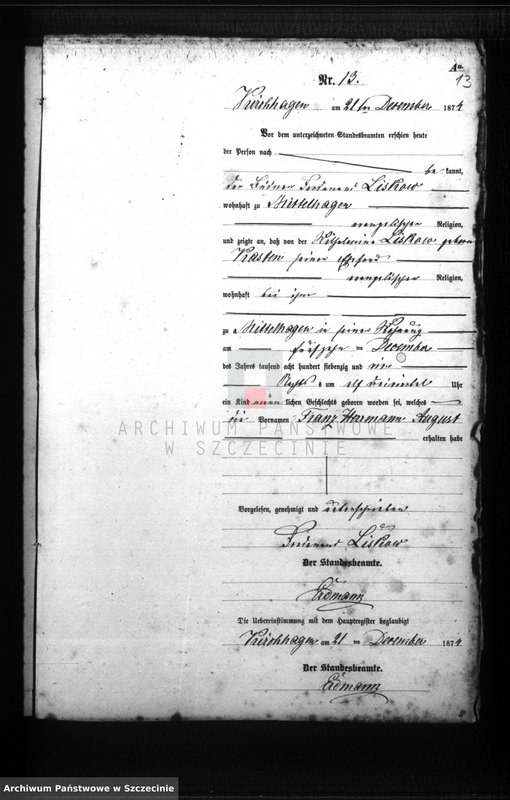 Aa.
13
Nr. 13.
Kirchhagen am 21ten December 1874
Vor dem unterzeichneten Standesbeamten erschien heute
der Person nach
be kannt,
der Büdner Ferdinand Liskow
wohnhaft zu Mittelhagen
evangelischer Religion,
und zeigte an, daß von der Wilhelmine Liskow geborne
Kasten seiner Ehefrau
evangelischer Religion,
wohnhaft bei ihm
zu Mittelhagen in seiner Wohnung
am fünfzehn ten December
des Jahres tausend acht hundert siebenzig und vier
Nachts um elf dreiviertel Uhr
ein Kind männ lichen Geschlechts geboren worden sei, welches
die Vornamen Franz Herrmann August
erhalten habe
ARCHIWUM PAŃSTWOWE
W SZCZECINIE
Vorgelesen, genehmigt und unterschrieben
Ferdinand Liskow
Der Standesbeamte.
Erdmann
Die Uebereinstimmung mit dem Hauptregister beglaubigt
Kirchhagen am 21 ten December 1874
Der Standesbeamte.
Erdmann
Archiwum Państwowe w Szczecinie